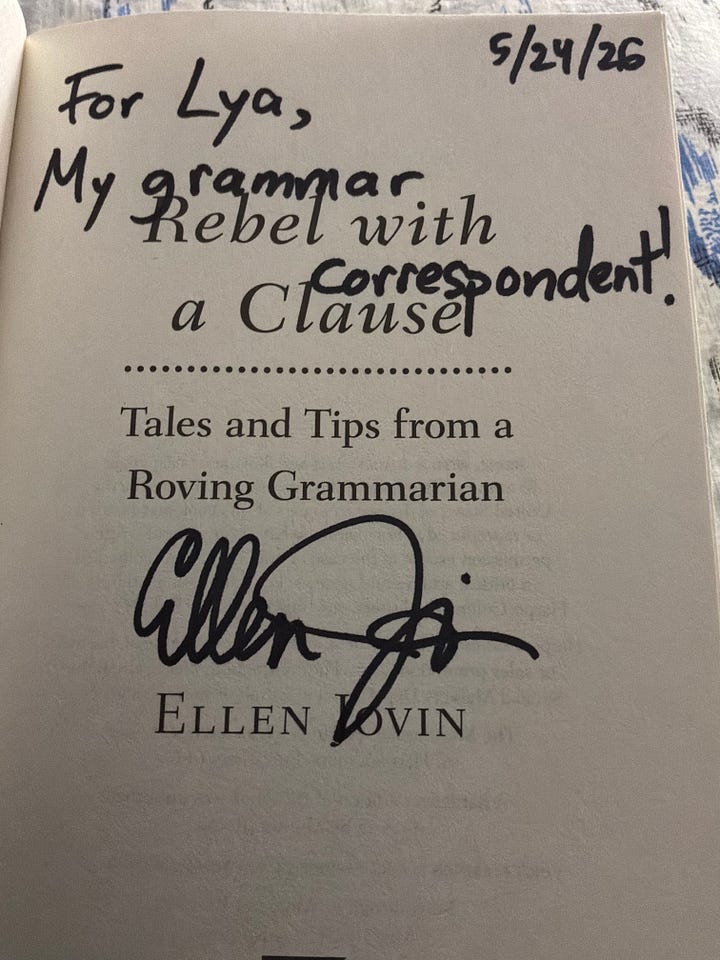 5/24/26
For Lya,
My grammar
Rebel with
correspondent!
a Clause
Tales and Tips from a
Roving Grammarian
Ellen Jovin
ELLEN JOVIN